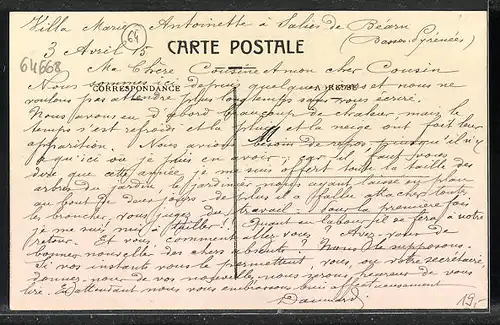 Villa Marie Antoinette à Salies de Béarn
64
3 Avril 15 (Basses-Pyrénées)
64668
CARTE POSTALE
Ma Chère Cousine et mon cher Cousin
CORRESPONDANCE
ADRESSE
Nous sommes ici depuis quelques jours et nous ne
voulons pas attendre plus longtemps sans vous écrire.
Nous avons eu d'abord beaucoup de chaleur, mais le
temps s'est refroidi et la pluie et la neige ont fait leur
apparition. Nous avions besoin de repos, puisque il n'y
a qu'ici où je puis en avoir; car il faut vous
dire que cette année, je me suis offert toute la taille des
arbres du jardin, le jardinier nous ayant laissé en plan
au bout de deux jours, de plus il a fallu
les broncher, vous jugez du travail! Pour la première fois
je me suis mis à tailler!! Quant au labour il se fera à notre
retour. Et vous, comment allez vous? Avez-vous de
bonnes nouvelles des chers absents? Nous le supposons.
Si vos instants vous le permettent vous, ou votre secrétaire,
donnez-nous de vos nouvelles, nous serons heureux de vous
lire. En attendant nous vous embrassons bien affectueusement
19,-